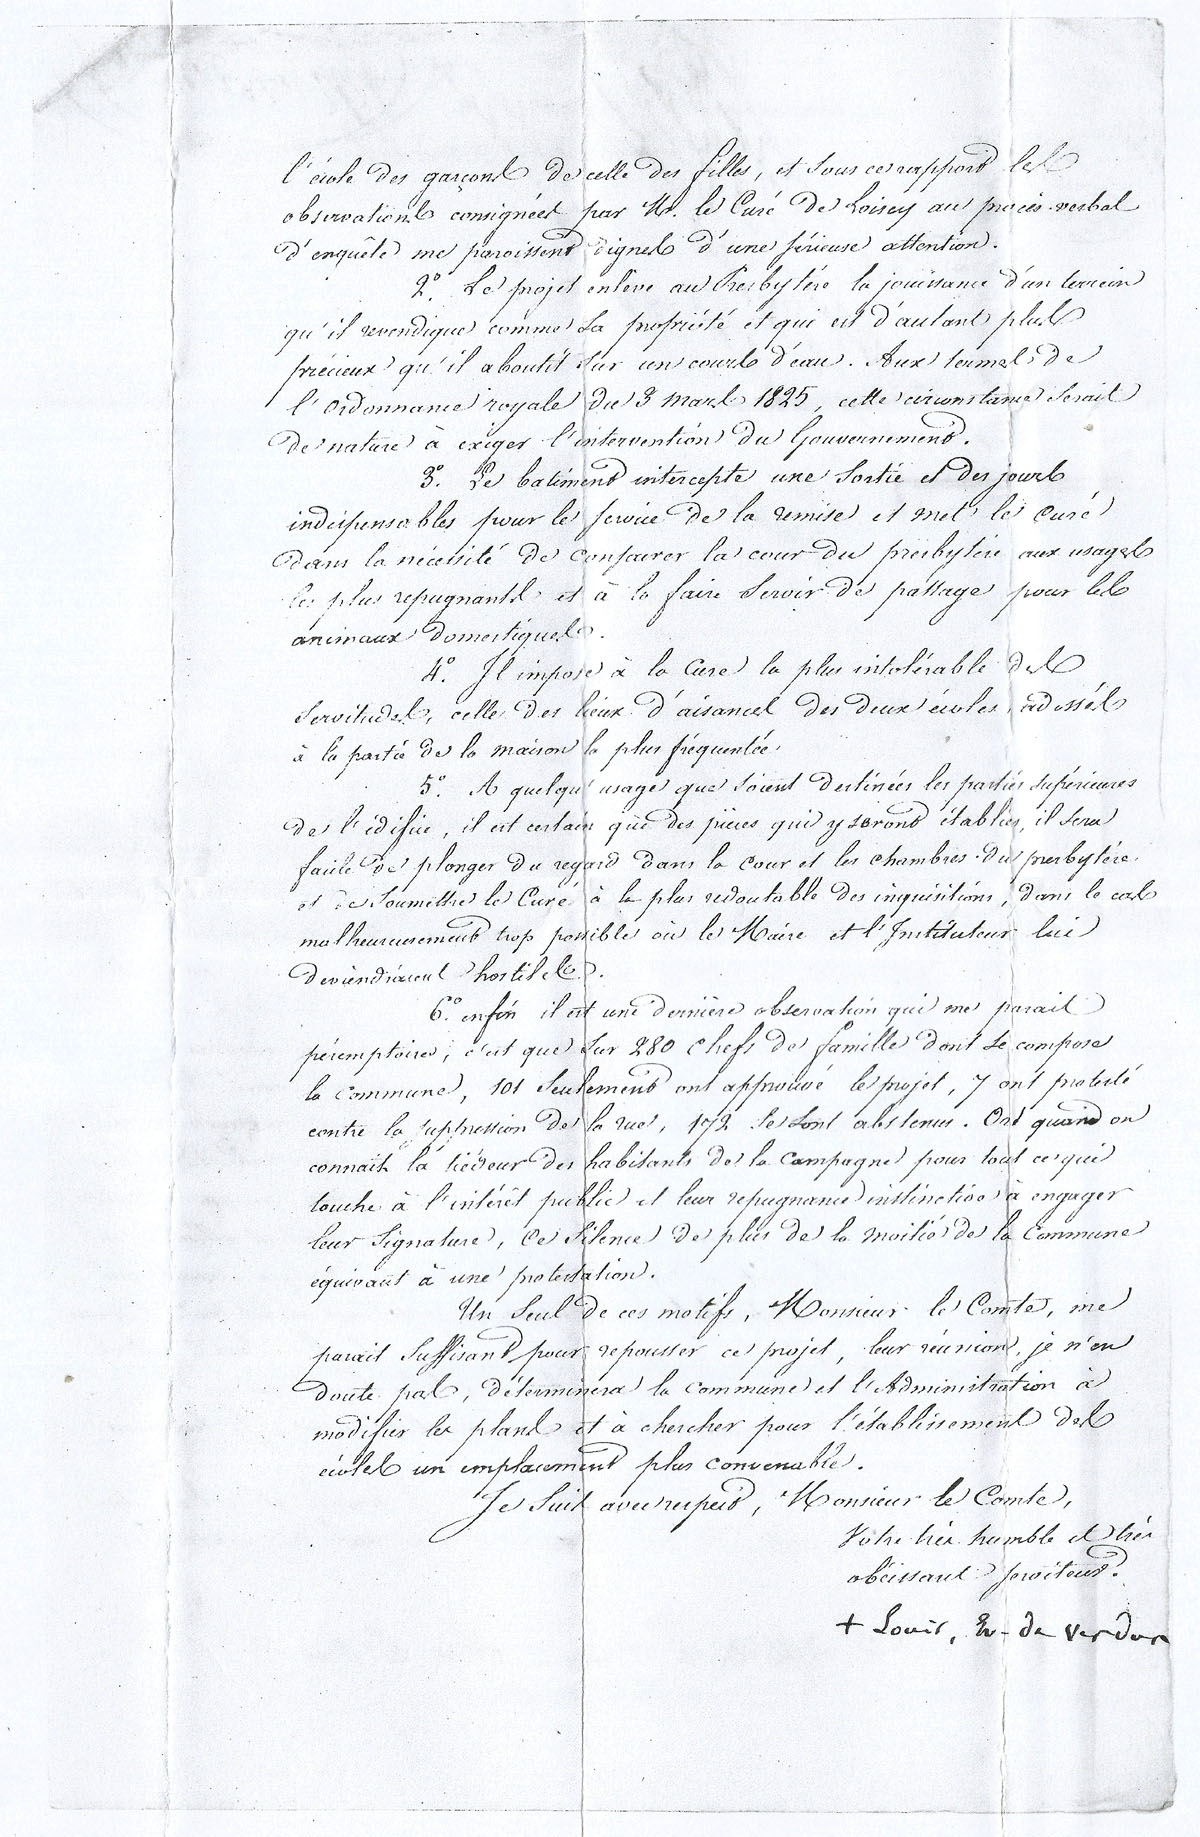 l'école des garçons de celle des filles, et sous ce rapport les
observations consignées par Mr. le Curé de Loisey au procès-verbal
d'enquête me paroissent dignes d'une sérieuse attention.
2º. Le projet enlève au Presbytère la jouissance d'un terrein
qu'il revendique comme sa propriété et qui est d'autant plus
précieux qu'il aboutit sur un cours d'eau. Aux termes de
l'Ordonnance royale du 3 mars 1825, cette circonstance serait
de nature à exiger l'intervention du Gouvernement.
3º. Le batiment intercepte une sortie et des jours
indispensables pour le service de la remise et met le curé
dans la nécessité de consacrer la cour du presbytère aux usages
les plus repugnants et à la faire servir de passage pour les
animaux domestiques.
4º. Il impose à la Cure la plus intolérable des
servitudes, celle des lieux d'aisances des deux écoles adossés
à la partie de la maison la plus fréquentée.
5º. A quelqu'usage que soient destinées les parties supérieures
de l'édifice, il est certain que des pièces qui y seront établies, il sera
facile de plonger du regard dans la cour et les chambres du presbytère
et de soumettre le Curé à la plus redoutable des inquisitions, dans le cas
malheureusement trop possible où le Maire et l'Instituteur lui
deviendraient hostiles.
6º. enfin il est une dernière observation qui me parait
péremptoire, c'est que sur 280 chefs de famille dont se compose
la commune, 101 seulement ont approuvé le projet, 7 ont protesté
contre la suppression de la rue, 172 se sont abstenus. Or quand on
connait la tiédeur des habitants de la campagne pour tout ce qui
touche à l'intérêt public et leur repugnance instinctive à engager
leur signature, ce silence de plus de la moitié de la Commune
équivaut à une protestation.
Un seul de ces motifs, Monsieur le Comte, me
parait suffisant pour repousser ce projet, leur réunion, je n'en
doute pas, déterminera la commune et l'Administration à
modifier les plans et à chercher pour l'établissement des
écoles un emplacement plus convenable.
Je suis avec respect, Monsieur le Comte,
Votre très humble et très
obéissant serviteur.
+ Louis, Ev. de Verdun